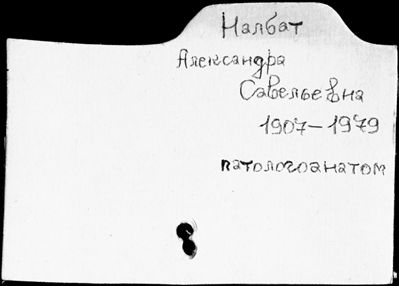 Налбат
Александра
Савельевна
1907-1979
патологоанатом